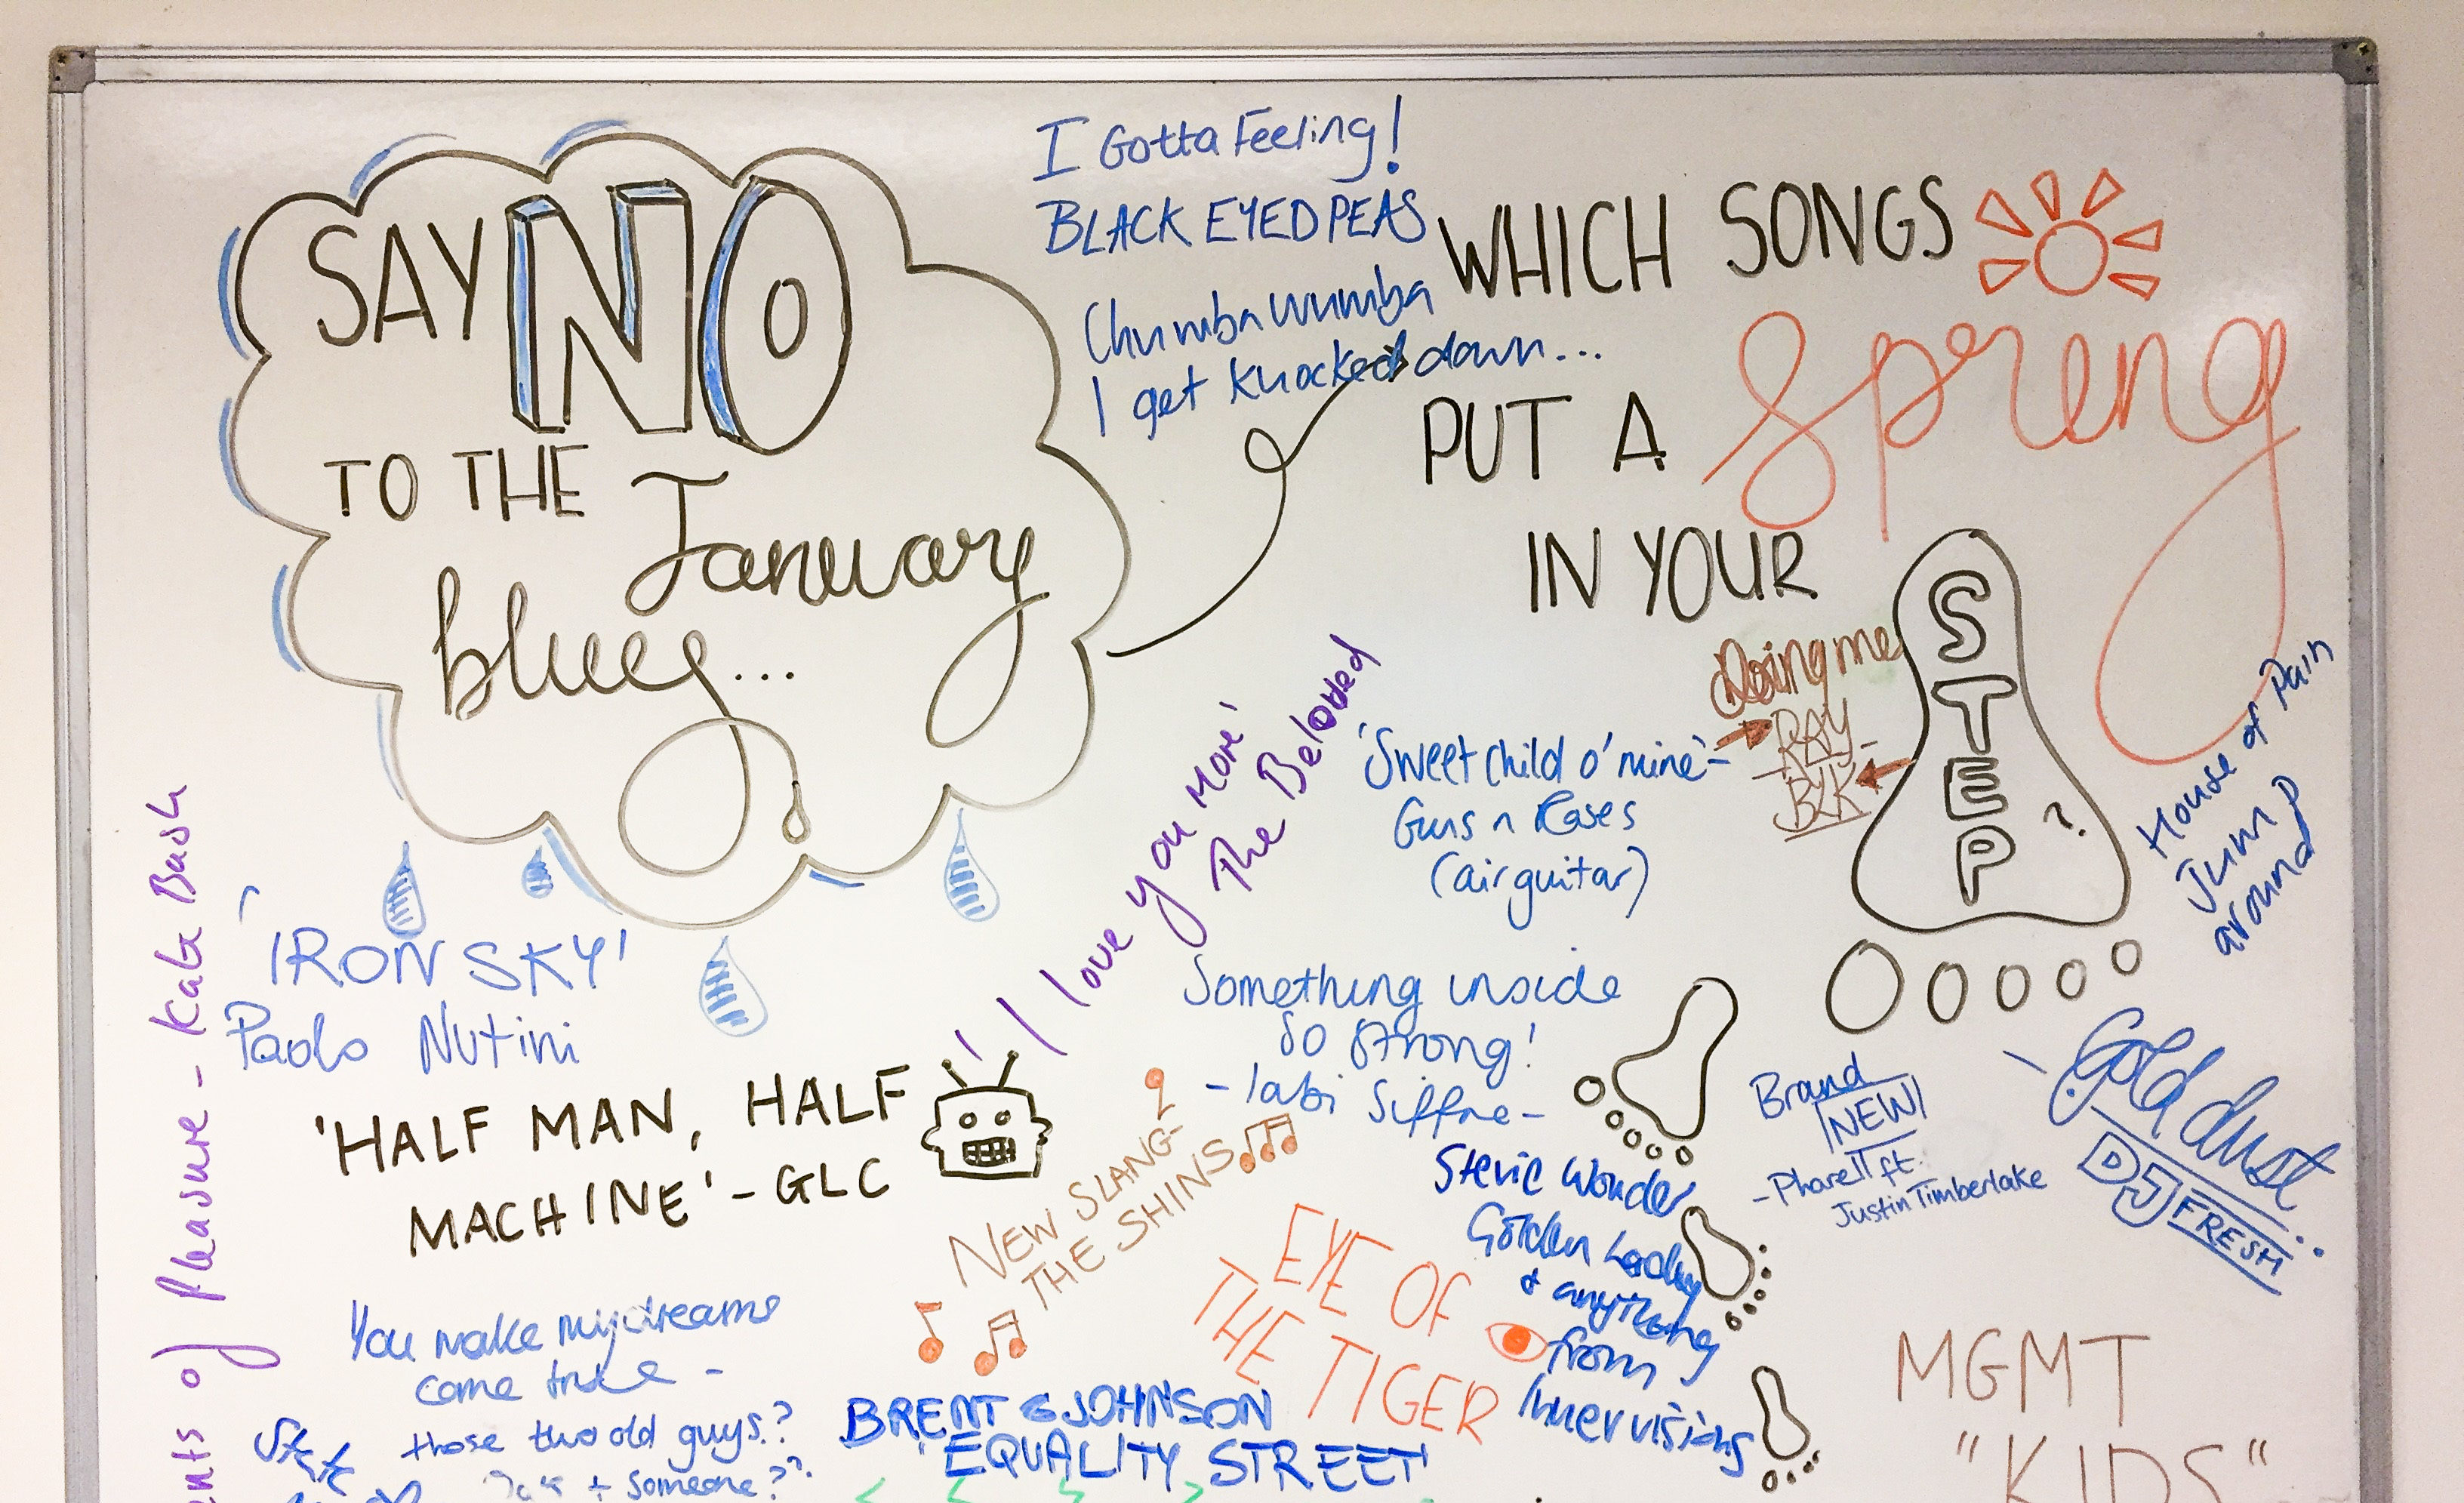 SAY NO
TO THE
January
blues...
I Gotta Feeling!
BLACK EYED PEAS
Chumbawumba
I get knocked down...
WHICH SONGS
PUT A
Spring
IN YOUR
STEP?
Doing me
RAY
BLK
'Sweet child o' mine'-
Guns n Roses
(air guitar)
House of Pain
Jump
around
'I love you more'
The Beloved
of pleasure - Kate Bush
'IRON SKY'
Paolo Nutini
'HALF MAN, HALF
MACHINE' - GLC
Something inside
so strong!
- labi Siffre -
NEW SLANG-
THE SHINS
Brand
NEW
- Pharell ft.
Justin Timberlake
Gold dust
DJ FRESH
Stevie Wonder
Golden Lady
& anything
from
Innervisions
EYE OF
THE TIGER
You make my dreams
come true -
those two old guys?
+ someone??
BRENT & JOHNSON
EQUALITY STREET'
MGMT
"KIDS"